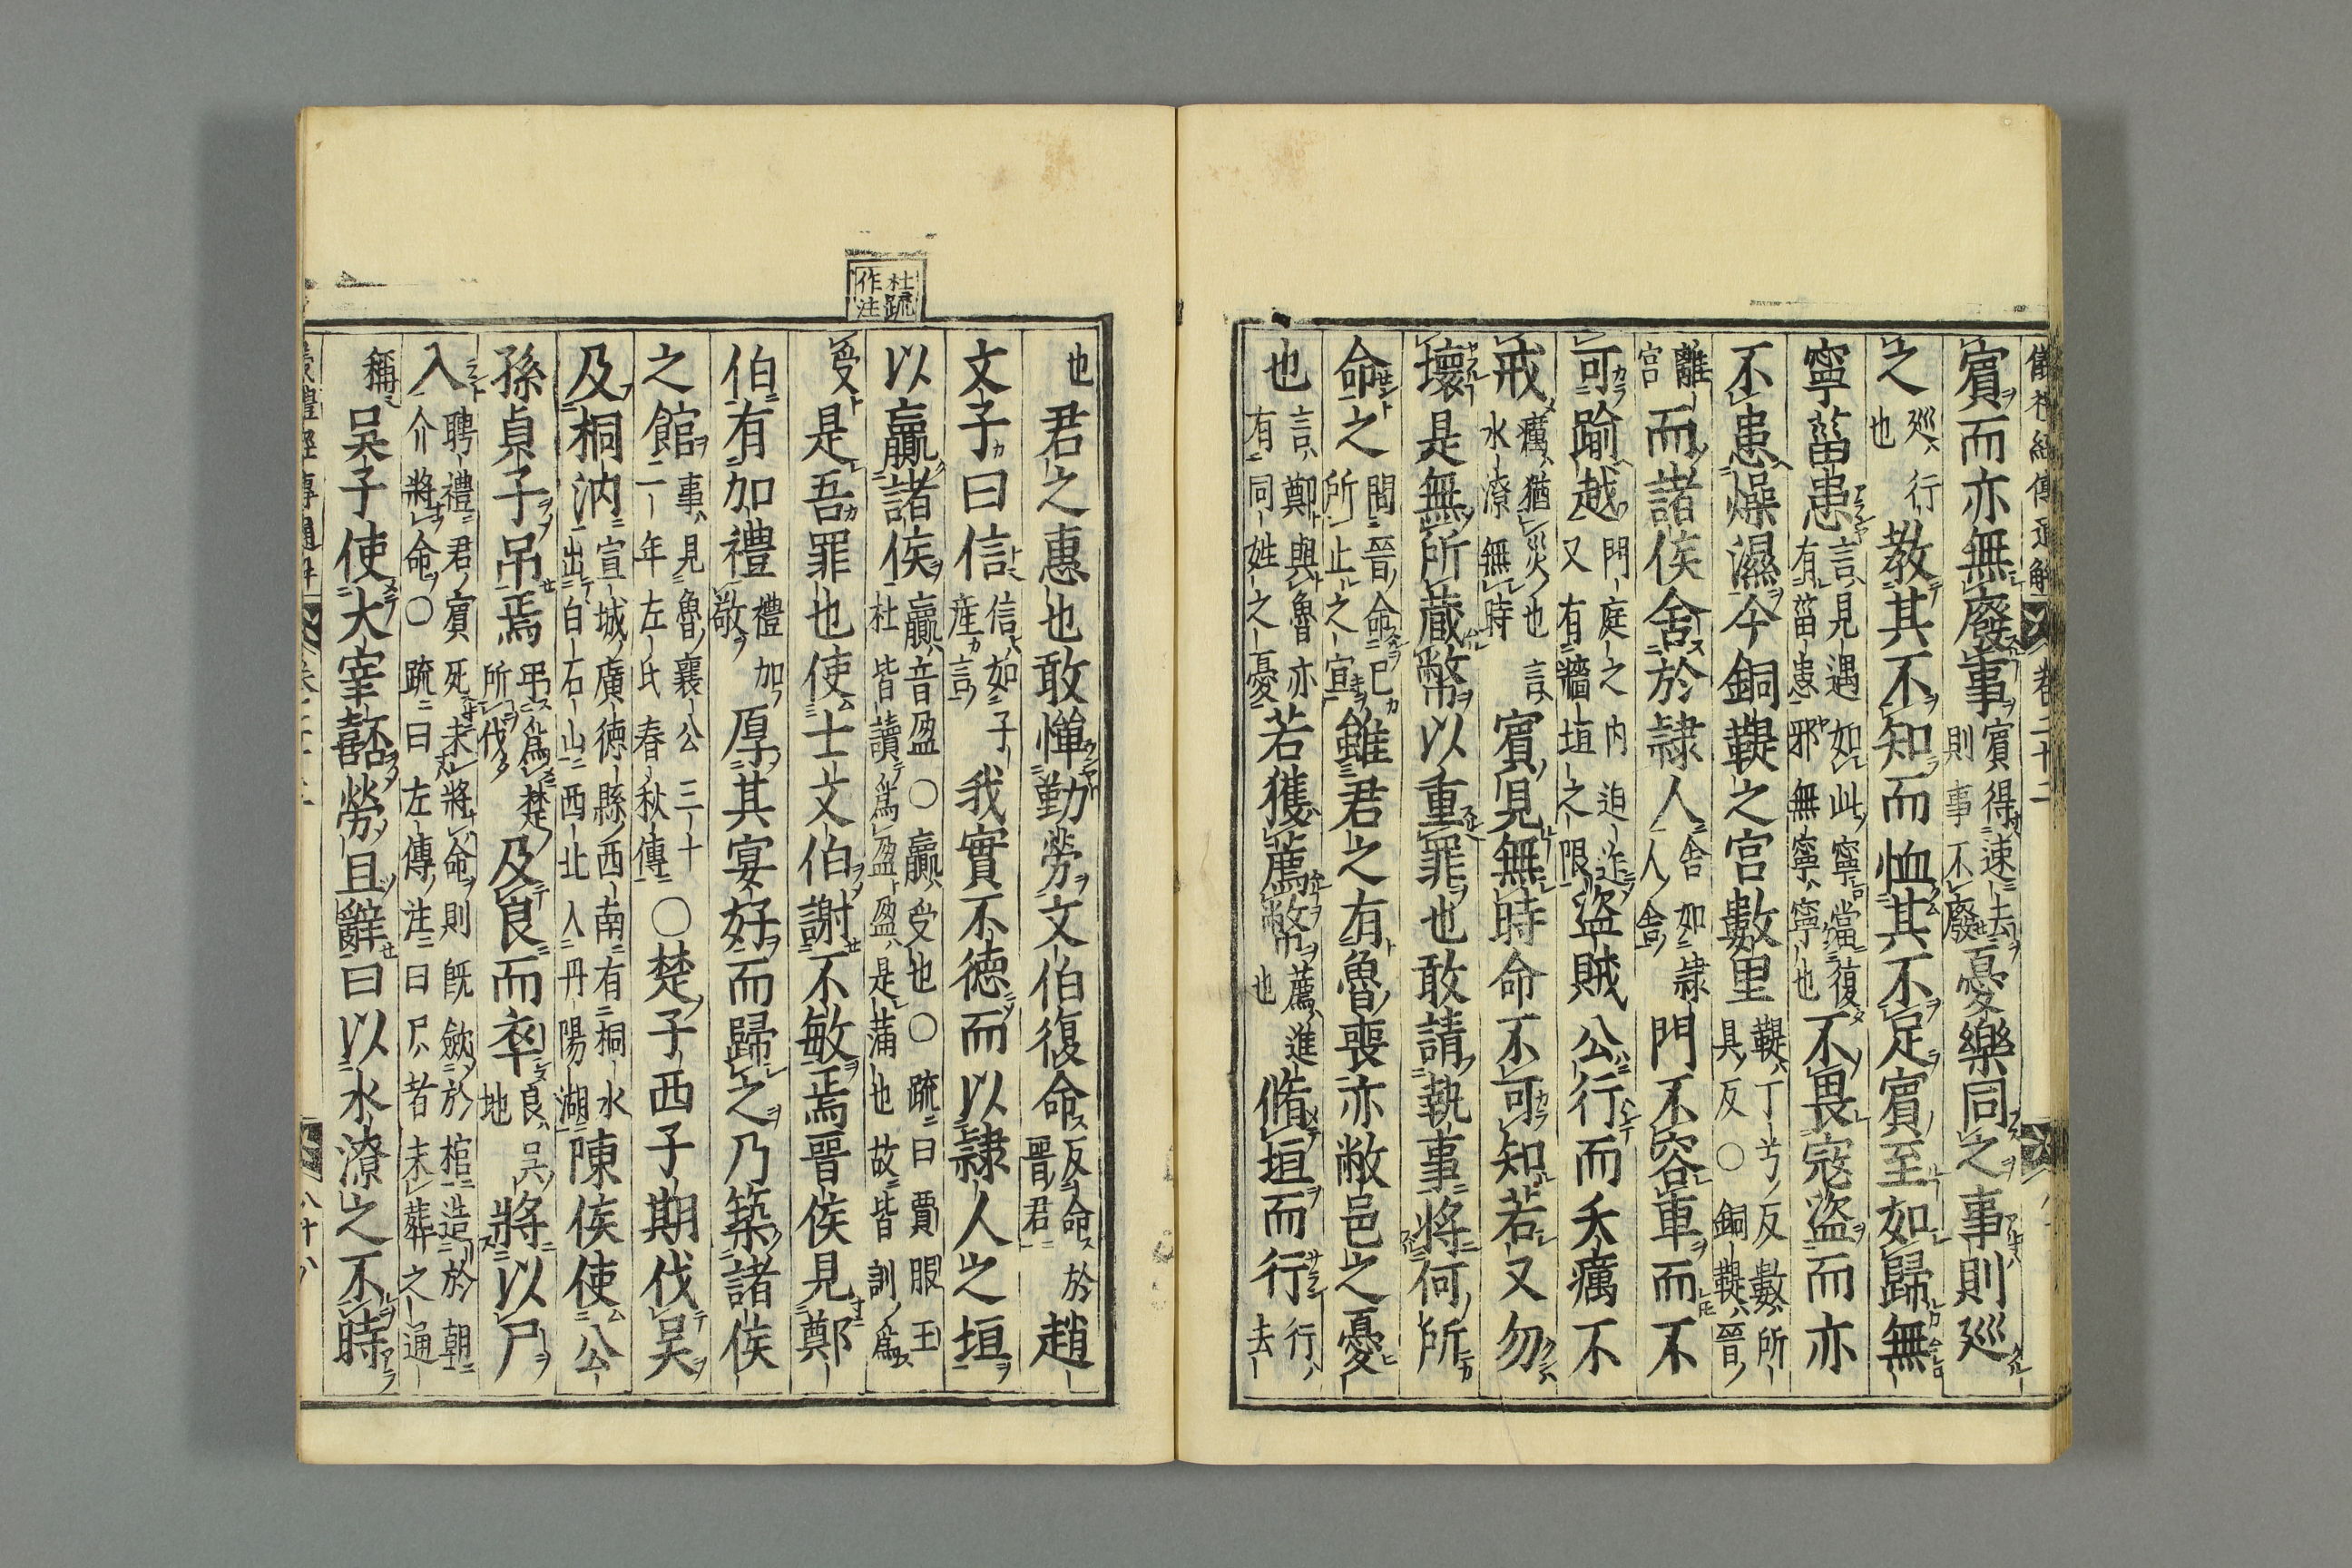 儀禮經傳通解 卷二十二
賓而亦無廢事賓得速去則事不廢憂樂同之事則巡
之巡行也教其不知而恤其不足賓至如歸無
寧菑患言見遇如此寧當復有菑患邪無寧寧也不畏寇盜而亦
不患燥濕今銅鞮之宮數里鞮丁兮反數所具反○銅鞮晉
離宮而諸侯舍於隷人舍如隷人舍門不容車而不
可踰越門庭之內迫迮又有牆垣之限盜賊公行而夭癘不
戒癘猶災也言水潦無時賓見無時命不可知若又勿
壞是無所藏幣以重罪也敢請執事將何所
命之問晉命己所止之宜雖君之有魯喪亦敝邑之憂
也言鄭與魯亦有同姓之憂若獲薦幣薦進也脩垣而行行去
也君之惠也敢憚勤勞文伯復命反命於晉君趙
文子曰信信如子產言我實不德而以隷人之垣
以贏諸侯贏音盈○贏受也○疏曰賈服王杜皆讀爲盈盈是滿也故皆訓爲
受是吾罪也使士文伯謝不敏焉晉侯見鄭
伯有加禮禮加敬厚其宴好而歸之乃築諸侯
之館事見魯襄公三十二年左氏春秋傳○楚子西子期伐吳
及桐汭宣城廣德縣西南有桐水出白石山西北入丹陽湖陳侯使公
孫貞子吊焉弔爲楚所伐及良而卒良吳地將以尸
入聘禮君賓死未將命則旣斂於棺造於朝介將命○疏曰左傳注曰尸者未葬之通
稱吳子使大宰嚭勞且辭曰以水潦之不時
杜疏作注